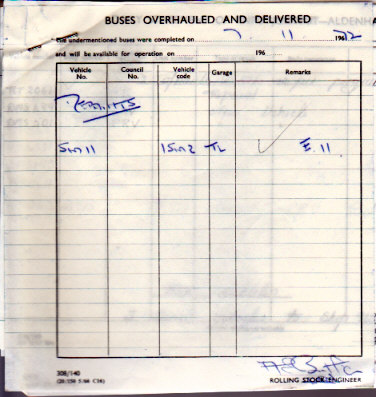 BUSES OVERHAULED AND DELIVERED
The undermentioned buses were completed on 7. 11 1972
and will be available for operation on 196
Vehicle No. Council No. Vehicle code Garage Remarks
Permits
Sm 11 1Sm2 TL ✓ E. 11
308/140
(20/150 5/66 C16)
ROLLING STOCK ENGINEER